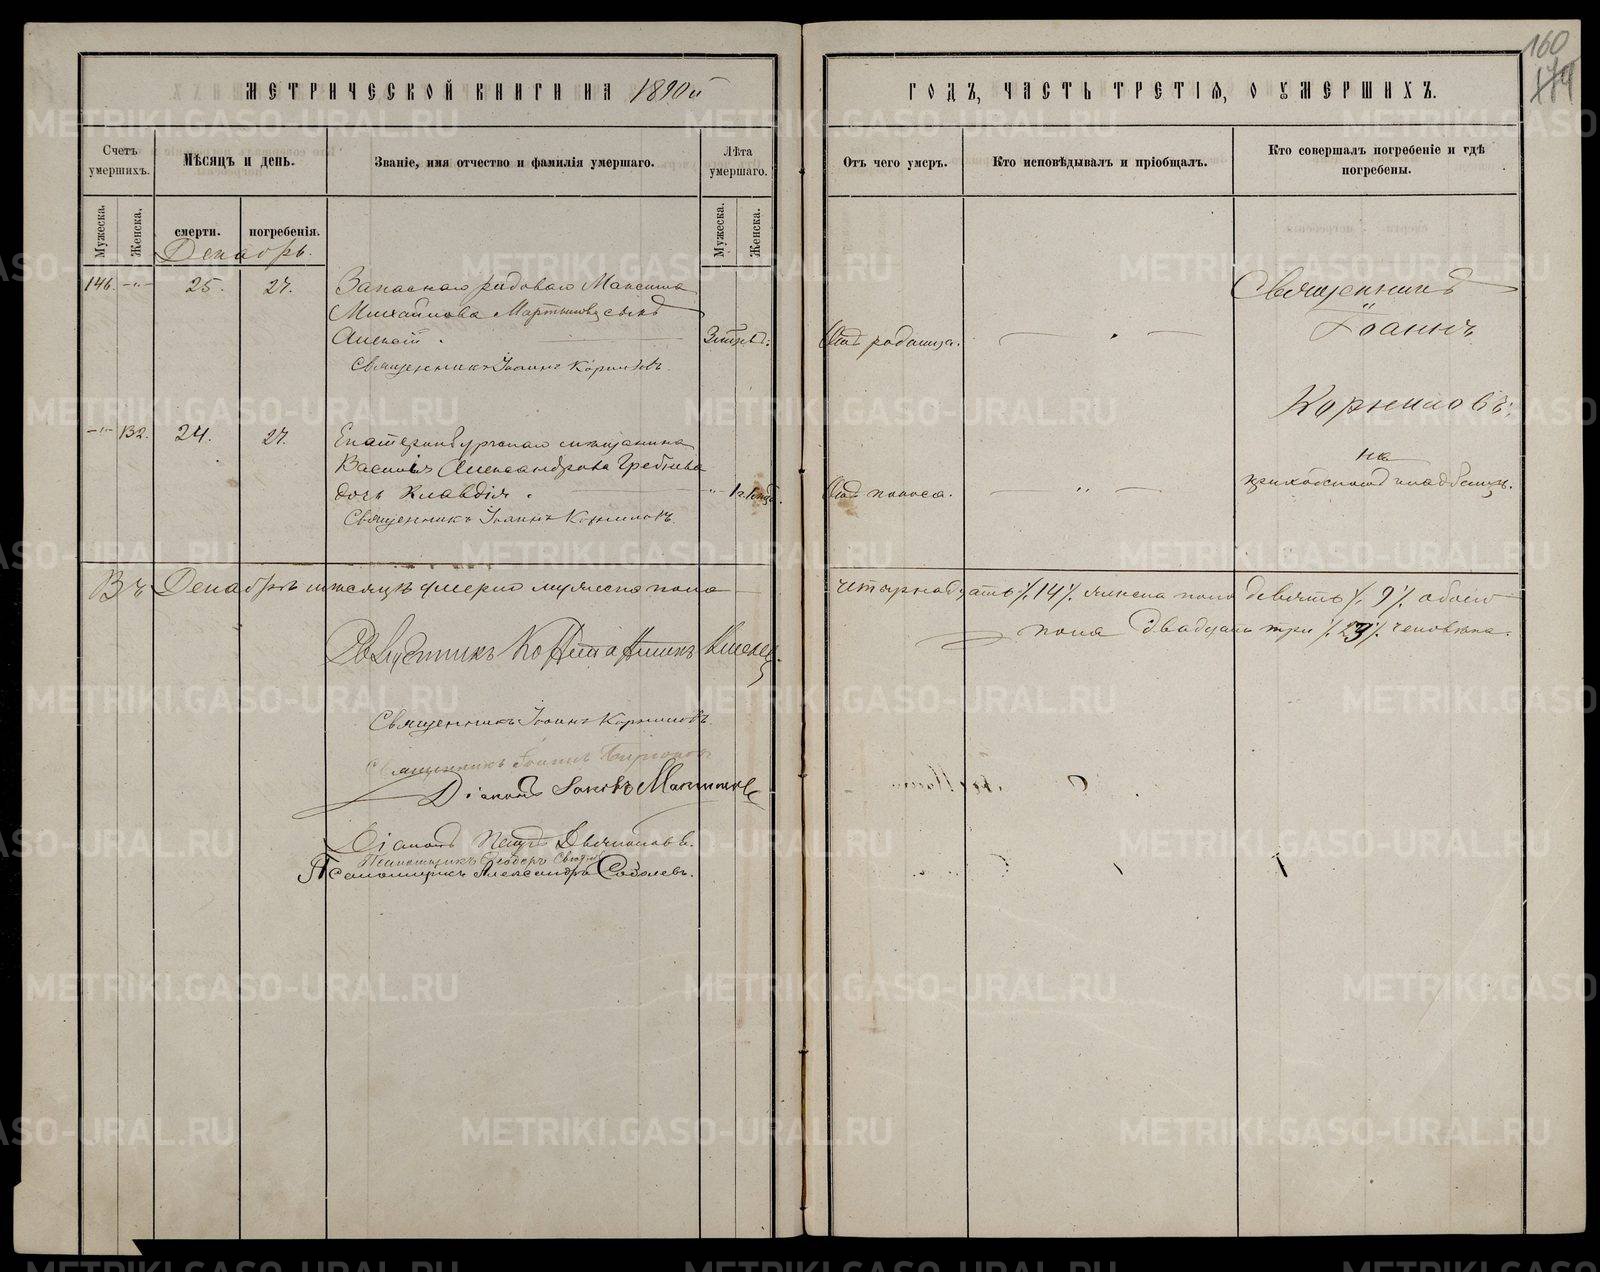 160
174
МЕТРИЧЕСКОЙ КНИГИ НА 1890й
ГОДЪ, ЧАСТЬ ТРЕТІЯ, О УМЕРШИХЪ.
Счетъ умершихъ.
Мѣсяцъ и день.
Званіе, имя отчество и фамилія умершаго.
Лѣта умершаго.
Отъ чего умеръ.
Кто исповѣдывалъ и пріобщалъ.
Кто совершалъ погребеніе и гдѣ погребены.
Мужеска.
Женска.
смерти.
погребенія.
Мужеска.
Женска.
Декабрь.
146. -"- 25. 27.
Запаснаго рядоваго Максима
Михайлова Мартынова сынъ
Алексій.
Священникъ Іоаннъ Корниловъ
Отъ родимца.
Священникъ
Іоаннъ
Корниловъ;
на
приходскомъ кладбищѣ.
-"- 132. 24. 27.
Екатеринбургскаго мѣщанина
Василія Александрова Гребнева
дочь Клавдія.
Священникъ Іоаннъ Корниловъ.
-"-
Отъ поноса.
Въ Декабрѣ мѣсяцѣ умерло мужеска пола
четырнадцать ./. 14 ./. женска пола девять ./. 9 ./. обоего
пола двадцать три ./. 23 ./. человѣка.
Священникъ Іоаннъ Корниловъ.
Священникъ Іоаннъ
Діаконъ Іаковъ
Діаконъ Петръ
Псаломщикъ Ѳеодоръ
Псаломщикъ Александръ Соболевъ.
METRIKI.GASO-URAL.RU